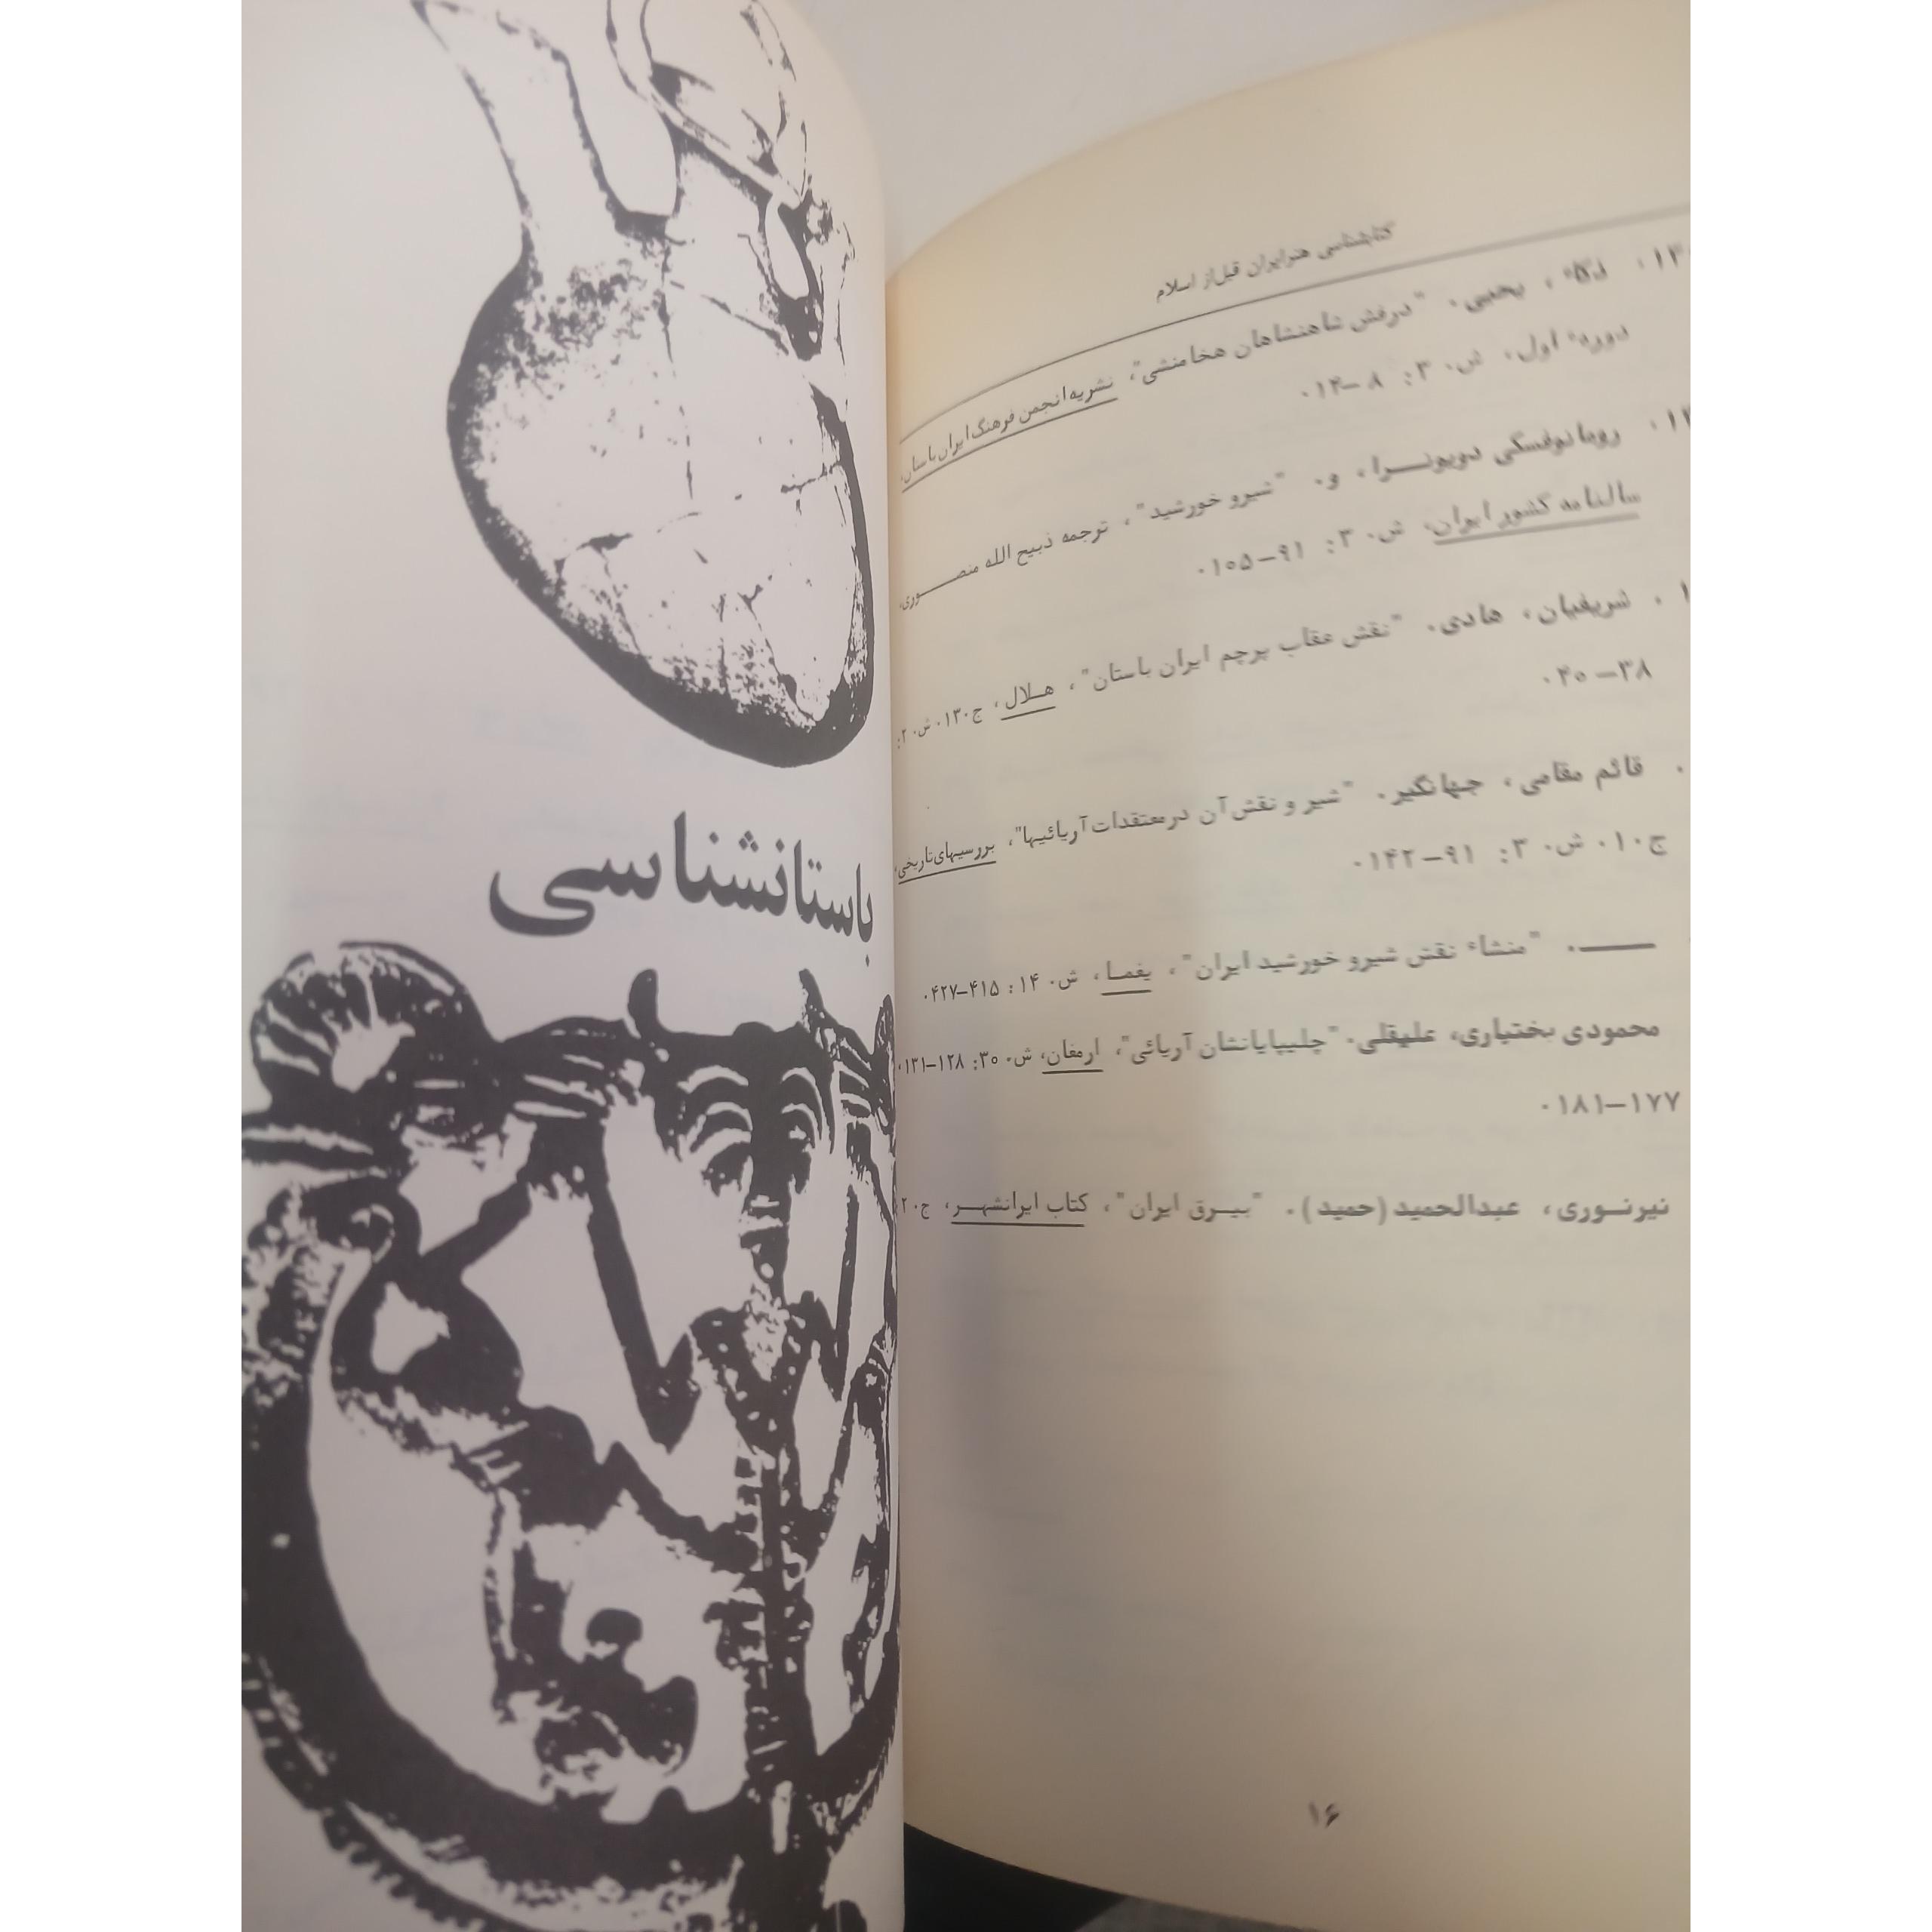 کتابشناسی هنر ایران قبل از اسلام
ذکاء، یحیی. "درفش شاهنشاهان هخامنشی"، نشریه انجمن فرهنگ ایران باستان،
دورهء اول، ش. ۳: ۸-۱۴.
رومانوفسکی دوبونـــرا، و. "شیر و خورشید"، ترجمه ذبیح الله منصـــوری،
سالنامه کشور ایران، ش. ۳: ۹۱-۱۰۵.
شریفیان، هادی. "نقش عقاب پرچم ایران باستان"، هـلال، ج۱۳. ش. ۲:
۳۸-۴۰.
قائم مقامی، جهانگیر. "شیر و نقش آن در معتقدات آریائیها"، بررسیهای تاریخی،
ج۱۰. ش. ۳: ۹۱-۱۴۲.
ــــــ. "منشاء نقش شیر و خورشید ایران"، یغمـا، ش. ۱۴: ۴۱۵-۴۲۷.
محمودی بختیاری، علیقلی. "چلیپا یا نشان آریائی"، ارمغان، ش. ۳۰: ۱۲۸-۱۳۱.
۱۷۷-۱۸۱.
نیرنـوری، عبدالحمید (حمید). "بیـرق ایران"، کتاب ایرانشهـــر، ج۲.
۱۶
باستانشناسی